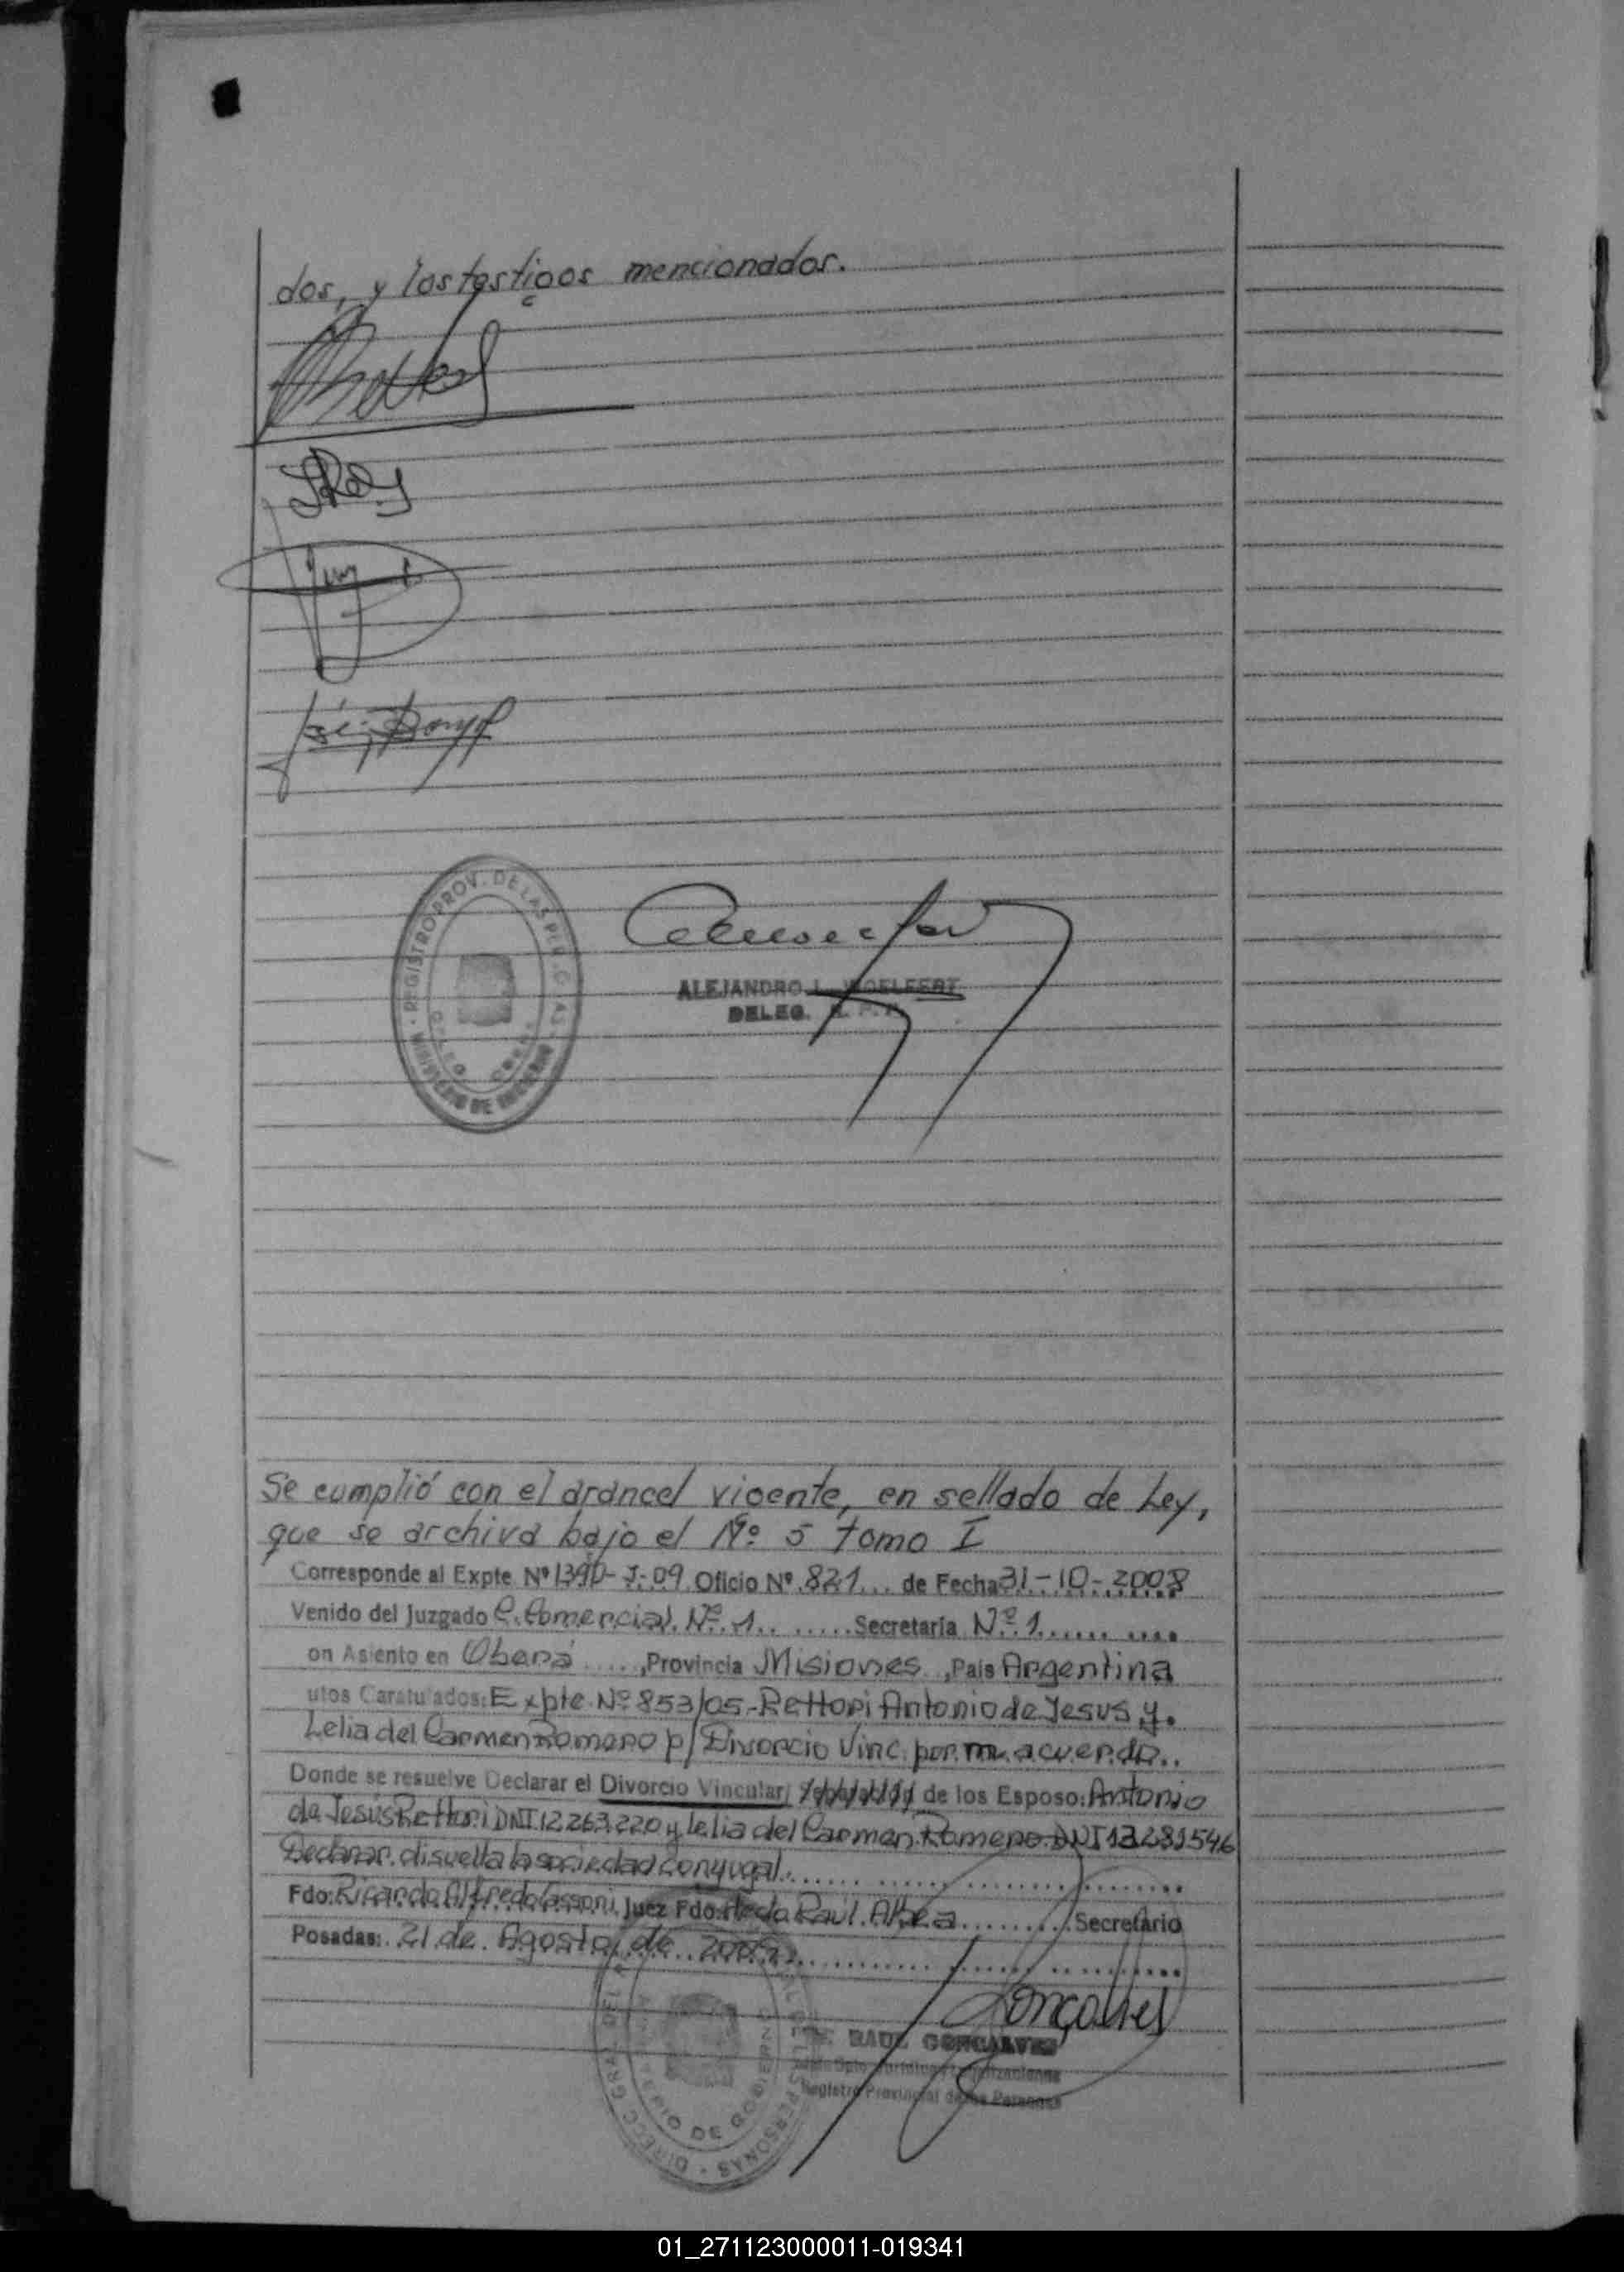 dos, y los testigos mencionados.
REGISTRO PROV. DE LAS PER
MINISTERIO DE
ALEJANDRO L. WOELFERT
DELEG. R. P. P.
Se cumplió con el arancel vigente, en sellado de Ley,
que se archiva bajo el Nº 5 tomo I
Corresponde al Expte. Nº 1390-J-09 Oficio Nº 821... de Fecha 31-10-2008
Venido del Juzgado C. Comercial Nº 1........ Secretaría Nº 1..........
on Asiento en Oberá ....., Provincia Misiones, País Argentina
utos Caratulados: Expte. Nº 853/05.-Rettori Antonio de Jesus y.
Lelia del Carmen Romero p/ Divorcio Vinc. por m. acuerdo..
Donde se resuelve Declarar el Divorcio Vincular, de los Esposo: Antonio
de Jesús Rettori DNI 12.263.220 y Lelia del Carmen Romero-DNI 13281546
Declarar disuelta la sociedad conyugal..............................
Fdo: Ricardo Alfredo Juez Fdo: Raúl. .......... Secretario
Posadas: 21 de Agosto de
Gonçalves
RAUL GONCALVES
Registro Provincial de las Personas
DIRECC GRAL DEL
PERSONAS
DE GOBIERNO
01_271123000011-019341